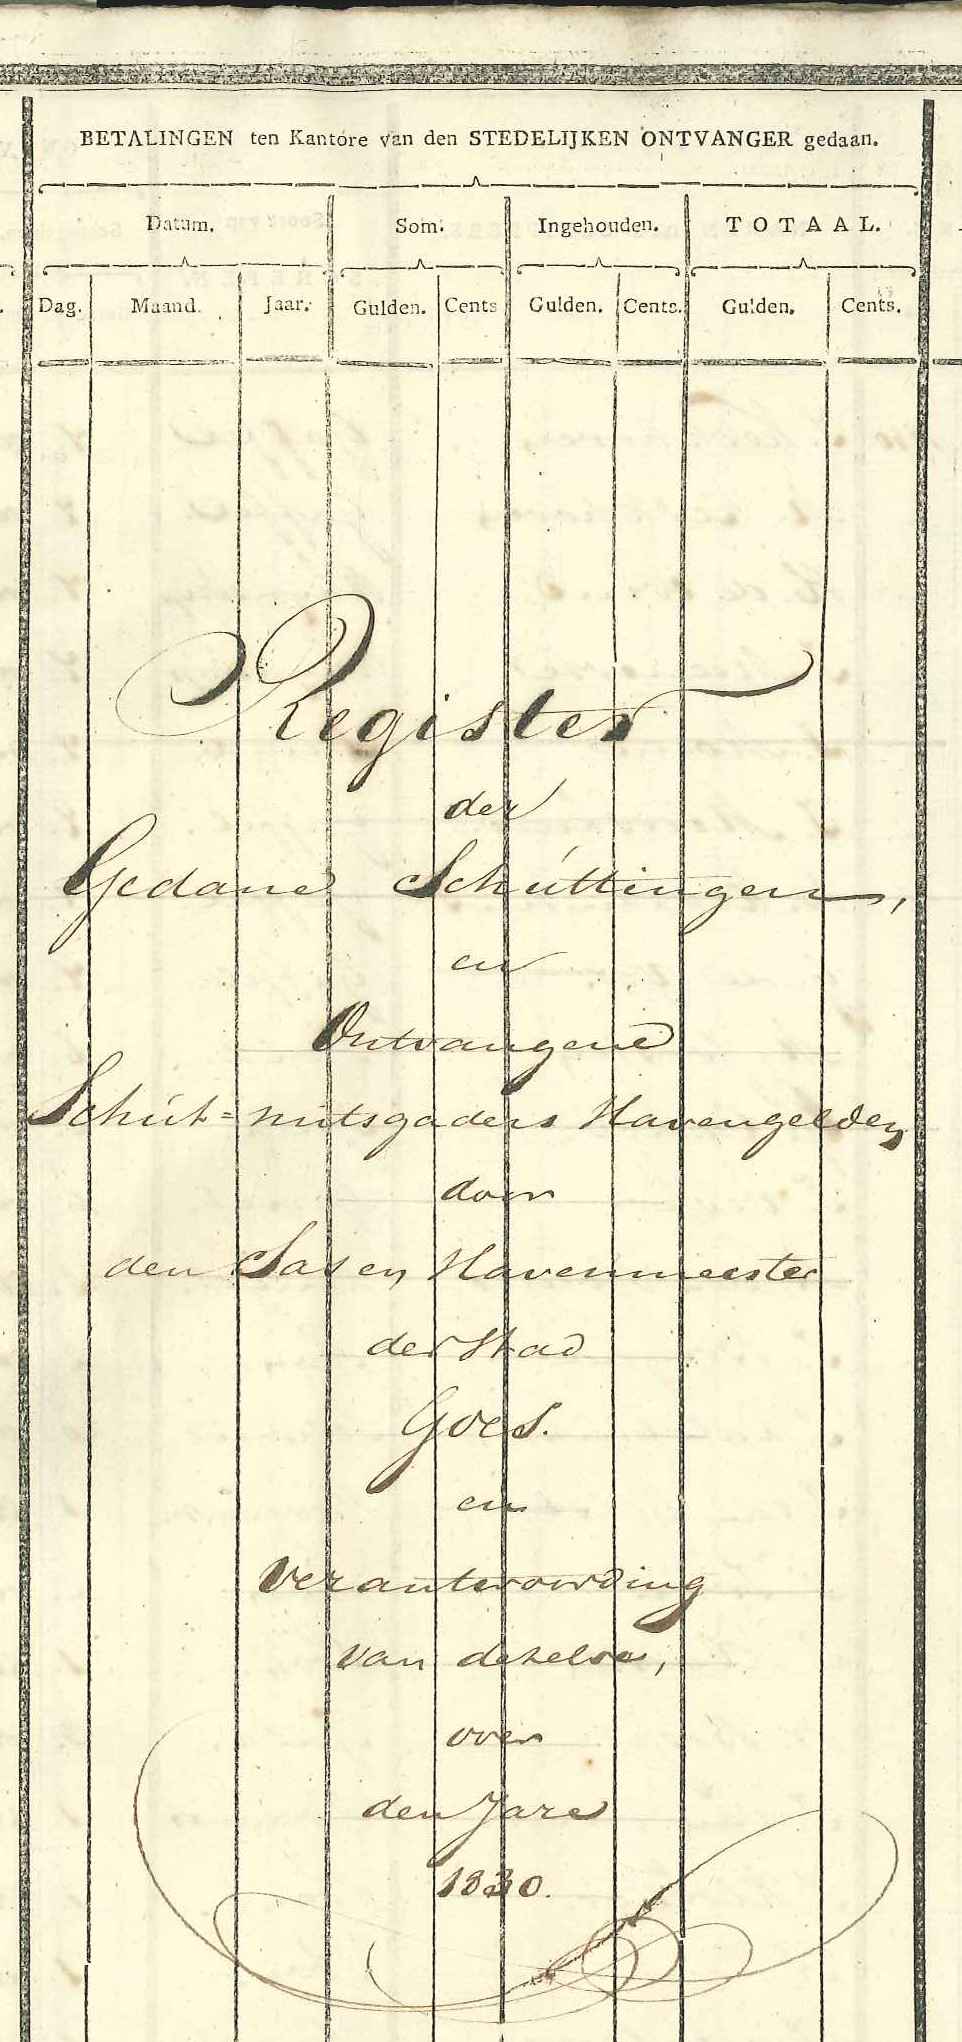 BETALINGEN ten Kantore van den STEDELIJKEN ONTVANGER gedaan.
Datum. Som. Ingehouden. TOTAAL.
Dag. Maand. Jaar. Gulden. Cents Gulden. Cents. Gulden. Cents.
Register
der
Gedane Schúttingen,
en
Ontvangene
Schút= mitsgaders Havengelden
door
den Sas en Havenmeester
der Stad
Goes.
en
Verantwoording
van dezelve,
over
den Jare
1830.